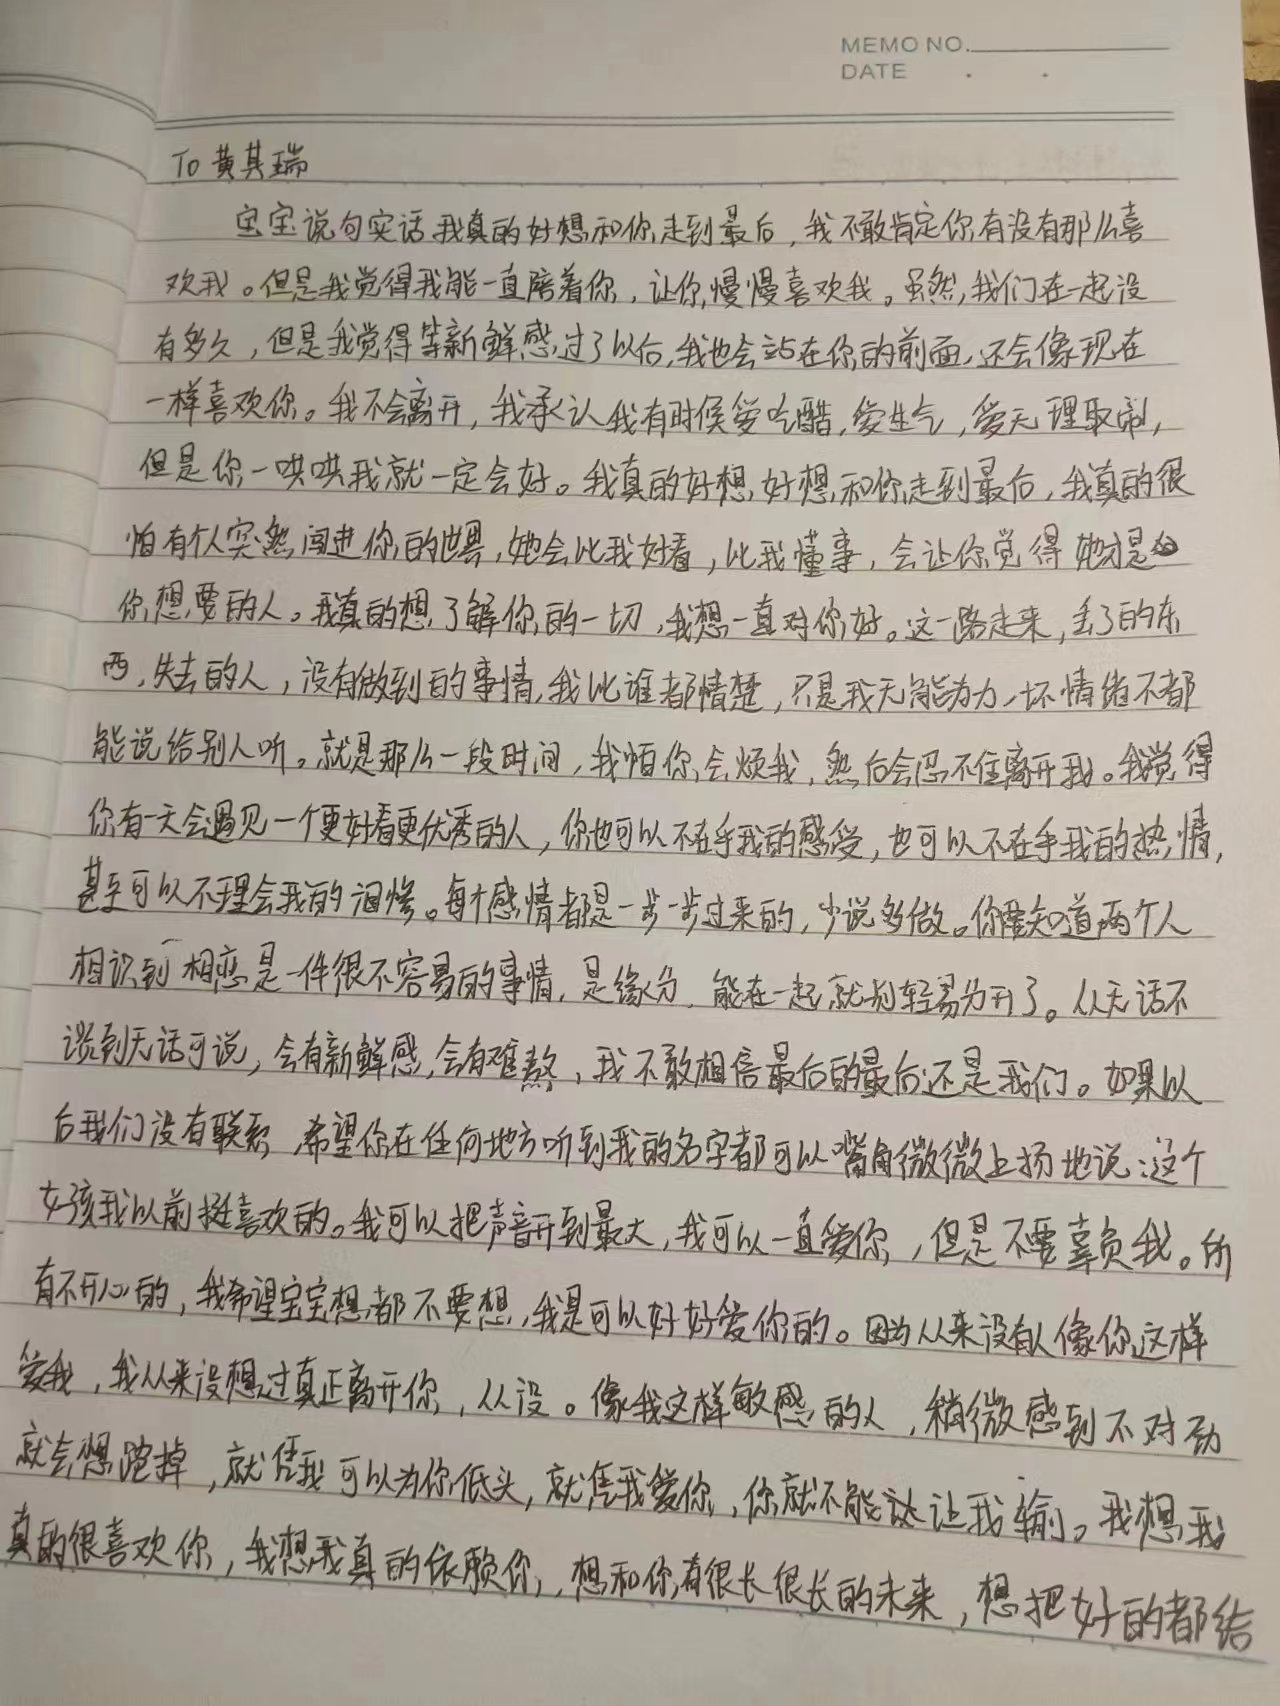 MEMO NO.
DATE . .
To 黄其瑞
宝宝说句实话我真的好想和你走到最后，我不敢肯定你有没有那么喜
欢我。但是我觉得我能一直陪着你，让你慢慢喜欢我。虽然我们在一起没
有多久，但是我觉得等新鲜感过了以后，我也会站在你的前面，还会像现在
一样喜欢你。我不会离开，我承认我有时候爱吃醋，爱生气，爱无理取闹，
但是你一哄哄我就一定会好。我真的好想，好想和你走到最后，我真的很
怕有个人突然闯进你的世界，她会比我好看，比我懂事，会让你觉得她才是
你想要的人。我真的想了解你的一切，我想一直对你好。这一路走来，丢了的东
西，失去的人，没有做到的事情，我比谁都清楚，只是我无能为力，坏情绪不都
能说给别人听。就是那么一段时间，我怕你会烦我，然后会忍不住离开我。我觉得
你有一天会遇见一个更好看更优秀的人，你也可以不在乎我的感受，也可以不在乎我的热情，
甚至可以不理会我的泪。每个感情都是一步一步过来的，少说多做。你要知道两个人
相识到相恋是一件很不容易的事情，是缘分，能在一起就别轻易分开了。从无话不
谈到无话可说，会有新鲜感，会有难熬，我不敢相信最后的最后还是我们。如果以
后我们没有联系，希望你在任何地方听到我的名字都可以嘴角微微上扬地说：这个
女孩我以前挺喜欢的。我可以把声音开到最大，我可以一直爱你，但是不要辜负我。所
有不开心的，我希望宝宝想都不要想，我是可以好好爱你的。因为从来没有人像你这样
爱我，我从来没想过真正离开你，从没。像我这样敏感的人，稍微感到不对劲
就会想跑掉，就凭我可以为你低头，就凭我爱你，你就不能让我输。我想我
真的很喜欢你，我想我真的依赖你，想和你有很长很长的未来，想把好的都给